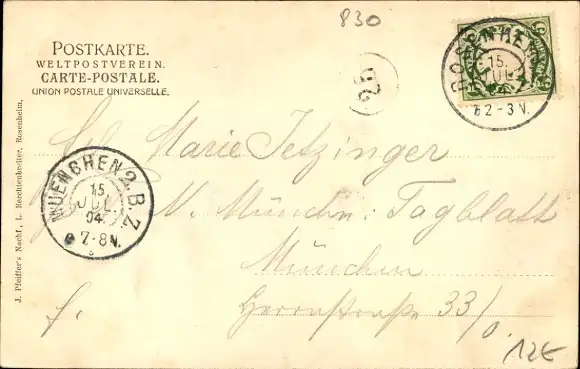 830
POSTKARTE.
WELTPOSTVEREIN.
CARTE-POSTALE.
UNION POSTALE UNIVERSELLE.
ROSENHEIM
15.
JUL
2-3 N.
25
Marie Tetzinger
N. Münchn: Tagblatt
München
Herrnstraße 33/0.
MUENCHEN 2. B.Z.
15
JUL
04
7-8 N.
J. Pfeiffer's Nachf., L. Rechtenbreiter, Rosenheim.
12€